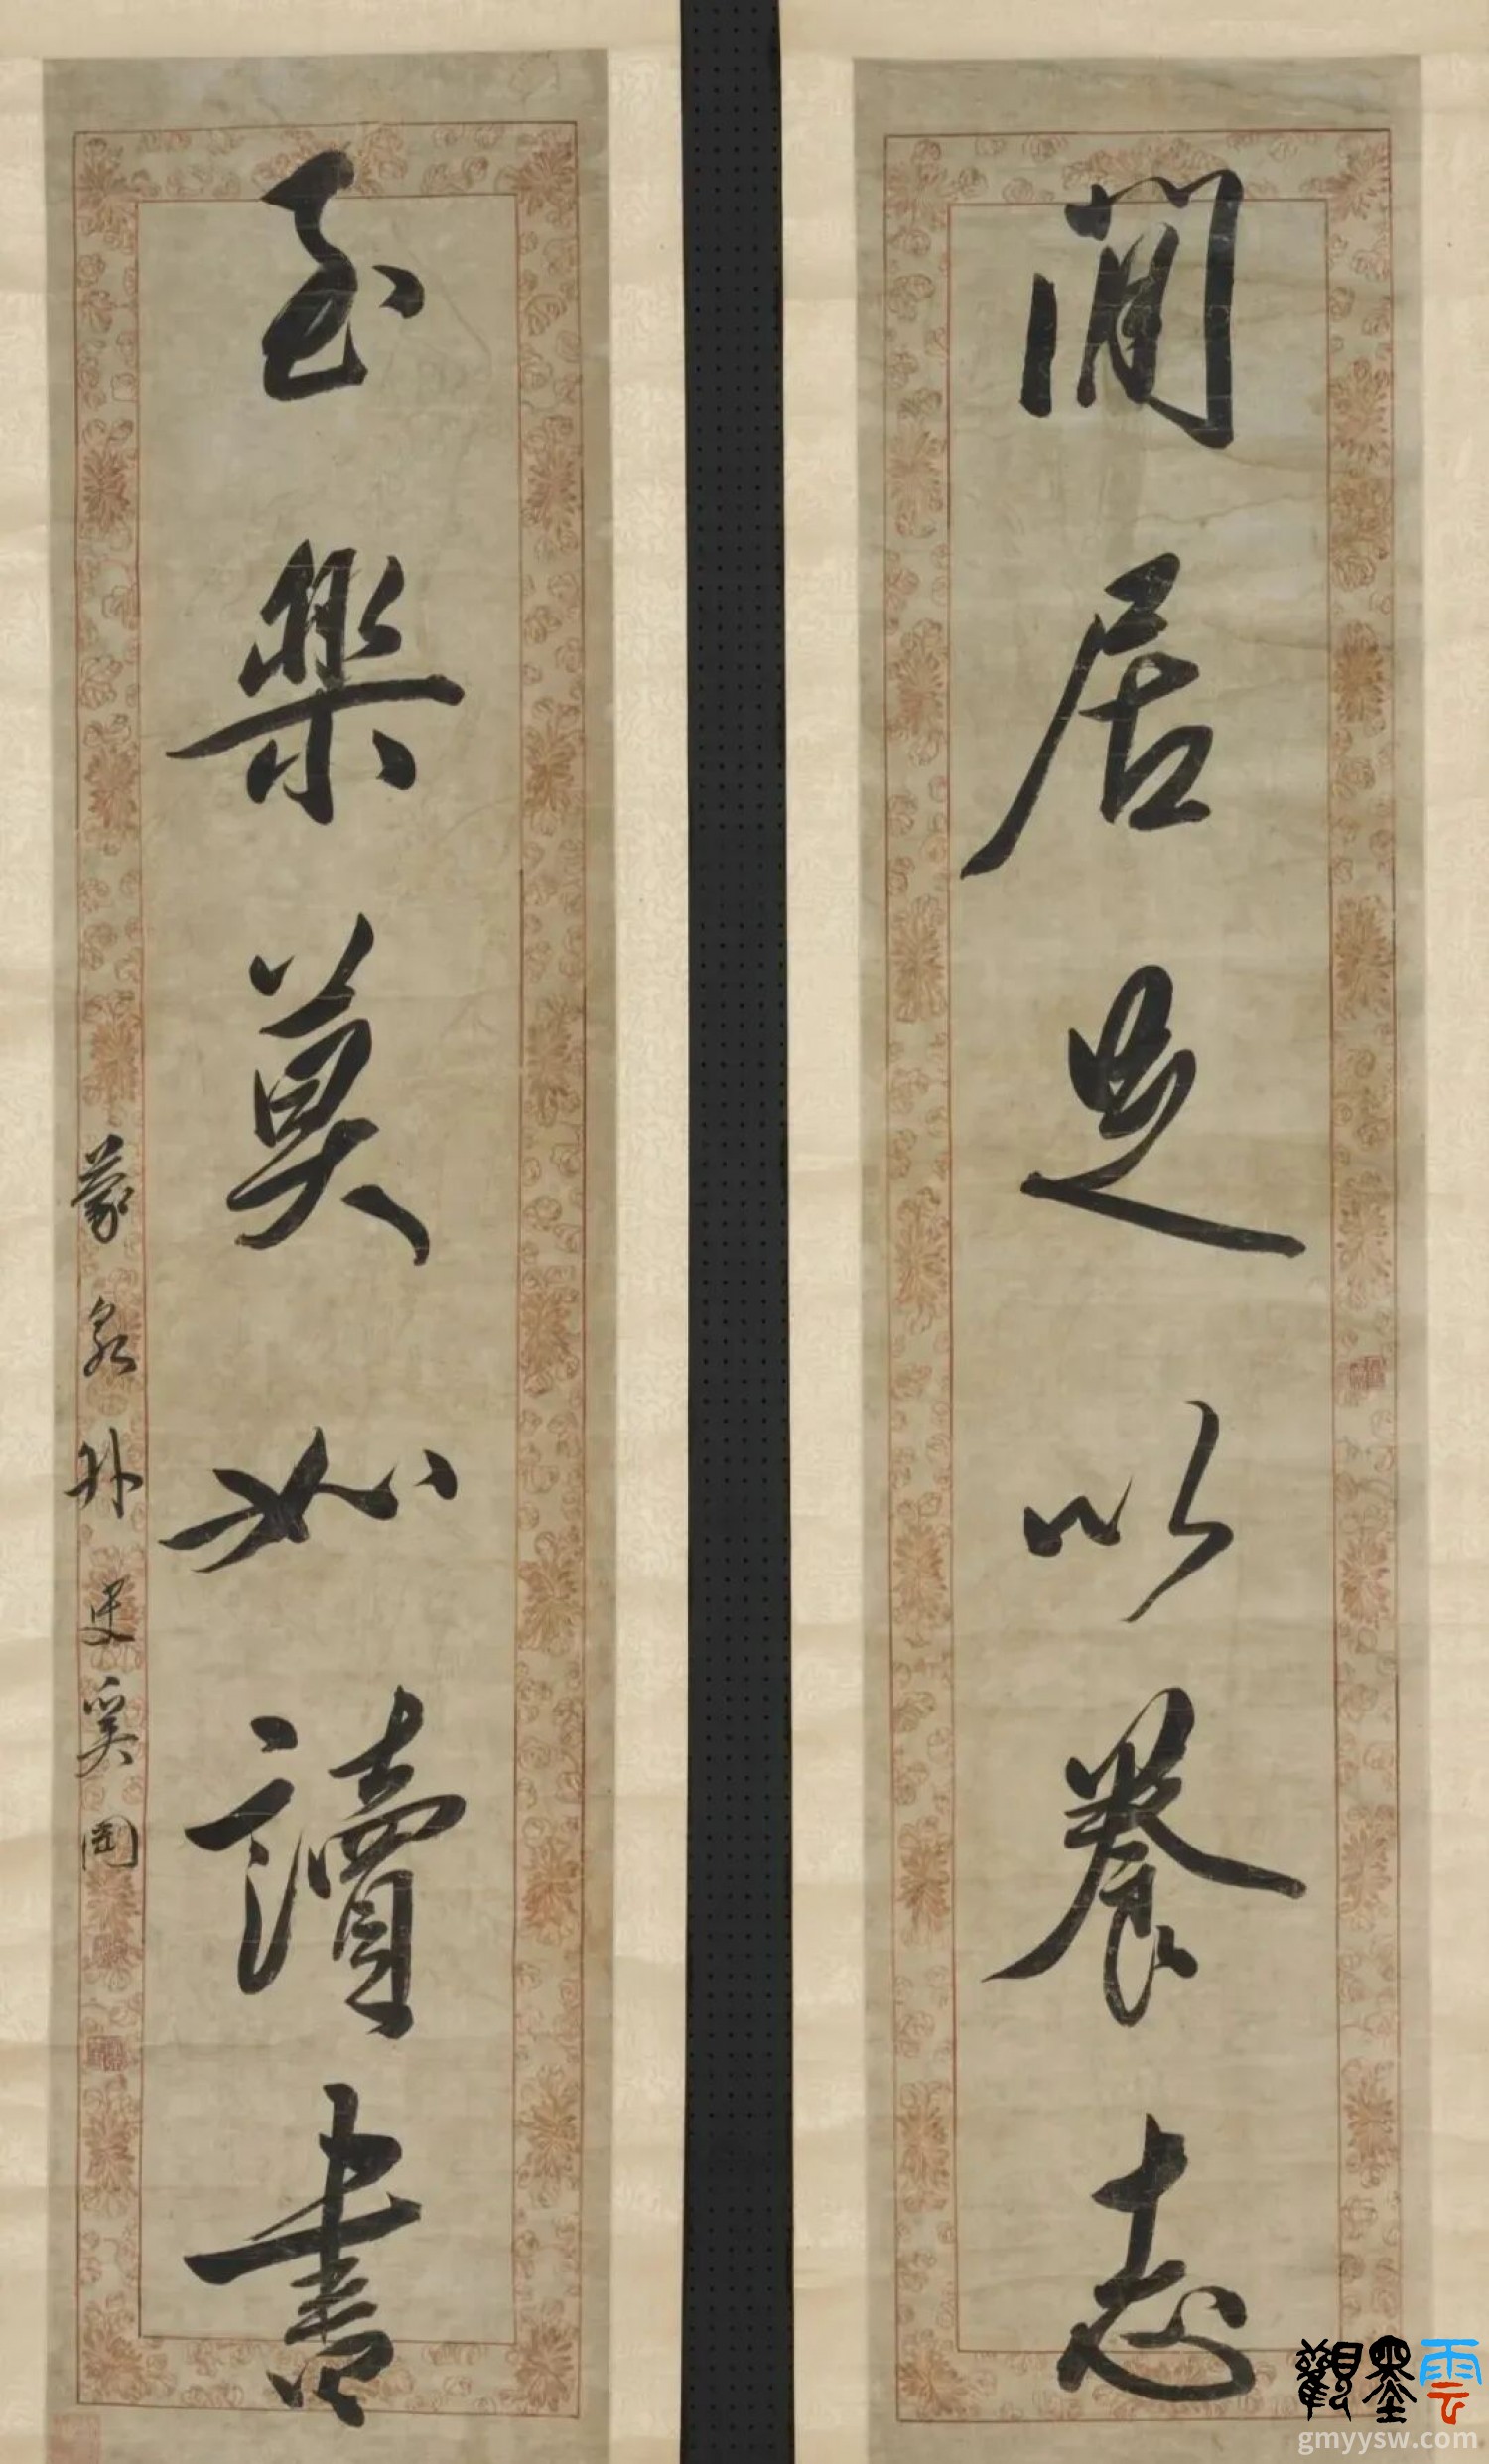 閒居足以養志
至樂莫如讀書
蒙泉外史奚岡
觀墨雲
gmyysw.com